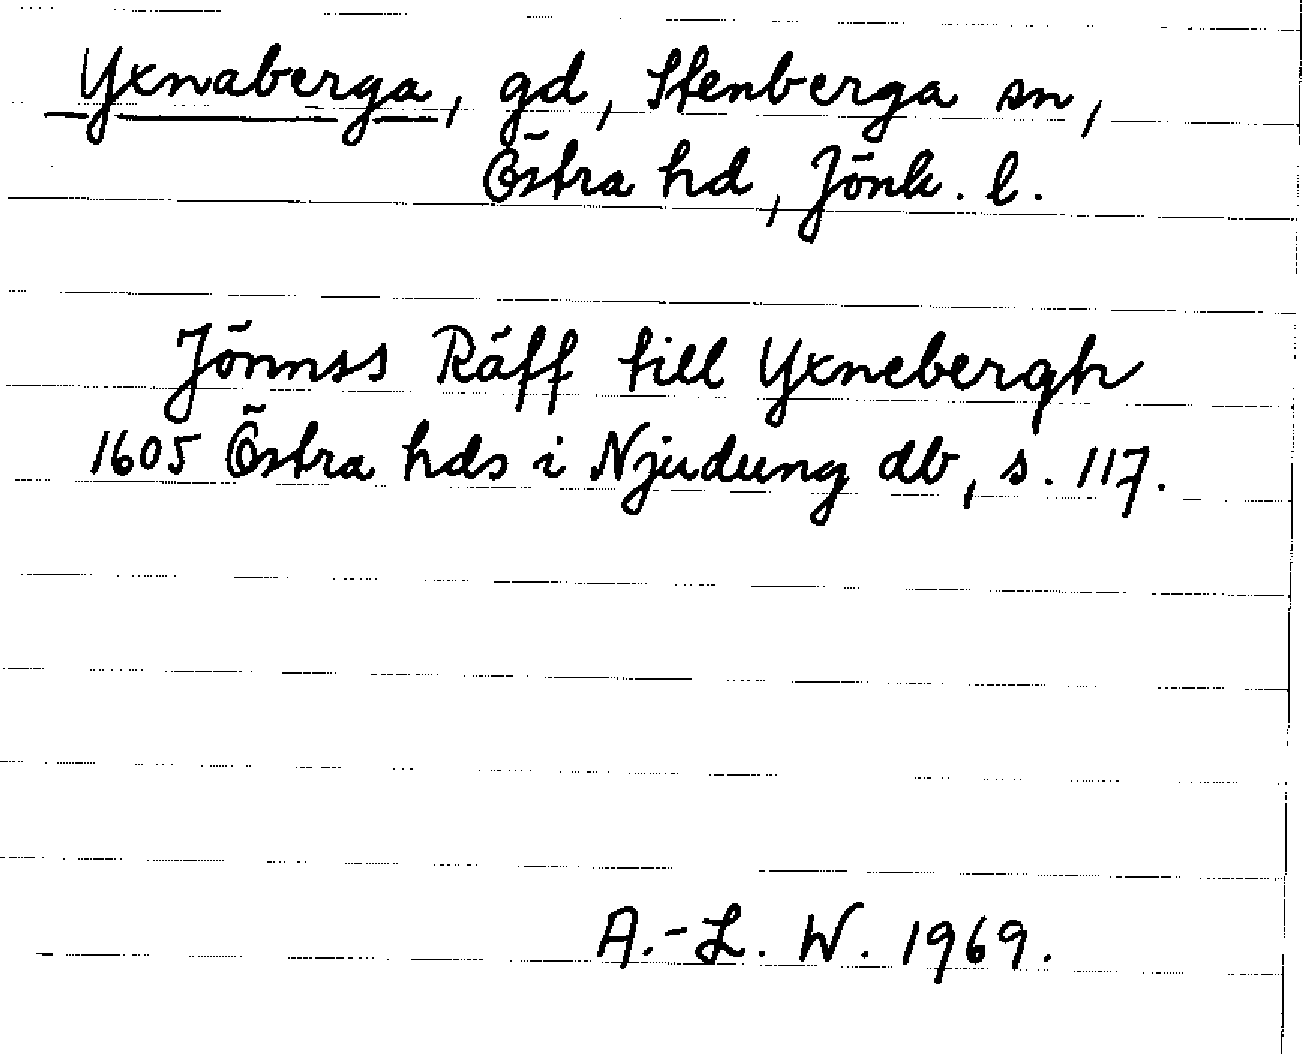 Yxnaberga, gd, Stenberga sn,
Östra hd, Jönk. l.
Jönnss Räff till Yxnebergh
1605 Östra hds i Njudung db, s. 117.
A.-L. W. 1969.